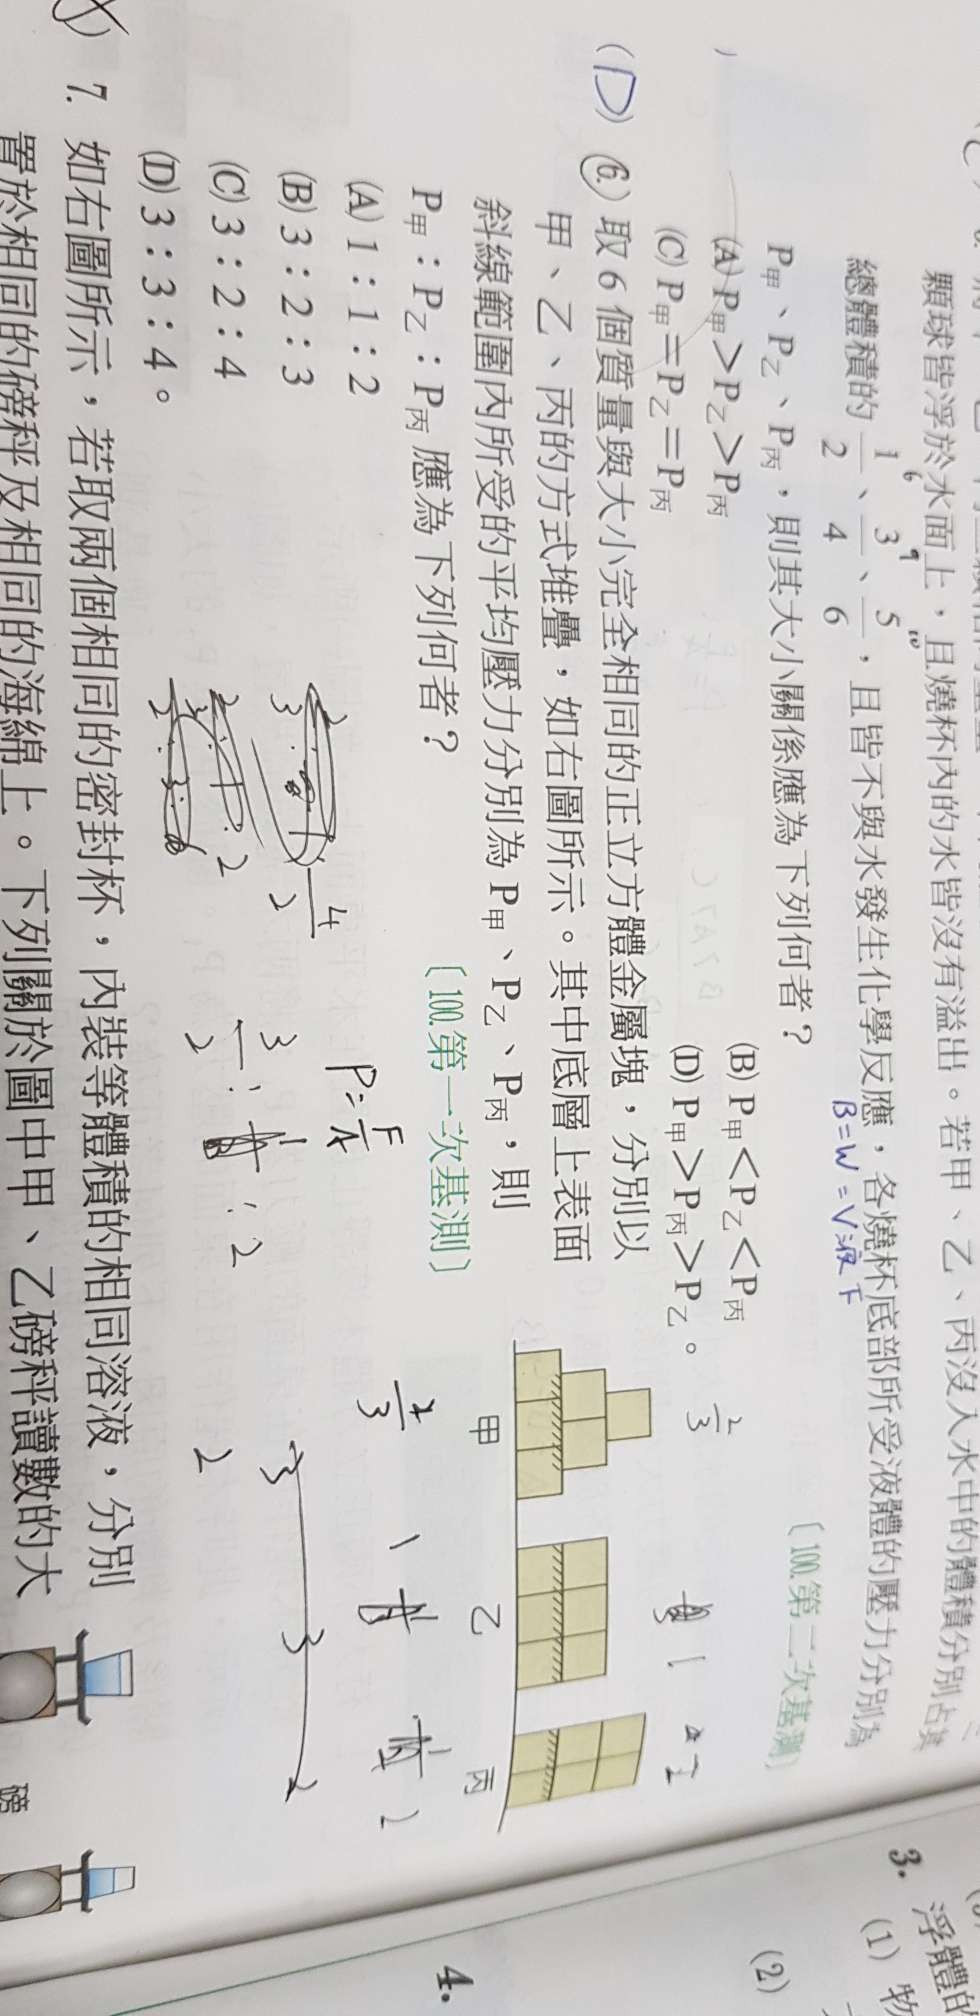 顆球皆浮於水面上，且燒杯內的水皆沒有溢出。若甲、乙、丙沒入水中的體積分別占其
總體積的 1/2、3/4、5/6，且皆不與水發生化學反應，各燒杯底部所受液體的壓力分別為
6 9 10
B=W=V液下
P甲、P乙、P丙，則其大小關係應為下列何者？
〔100.第二次基測〕
(A) P甲＞P乙＞P丙
(B) P甲＜P乙＜P丙
(C) P甲＝P乙＝P丙
(D) P甲＞P丙＞P乙。
(D) 6. 取 6 個質量與大小完全相同的正立方體金屬塊，分別以
甲、乙、丙的方式堆疊，如右圖所示。其中底層上表面
斜線範圍內所受的平均壓力分別為 P甲、P乙、P丙，則
P甲：P乙：P丙 應為下列何者？
〔100.第一次基測〕
(A) 1：1：2
(B) 3：2：3
(C) 3：2：4
(D) 3：3：4。
甲
乙
丙
P=F/A
3/2 : 1 : 2
3 3 2
7. 如右圖所示，若取兩個相同的密封杯，內裝等體積的相同溶液，分別
置於相同的磅秤及相同的海綿上。下列關於圖中甲、乙磅秤讀數的大
磅
3.
浮體的
(1) 物
(2)
4.